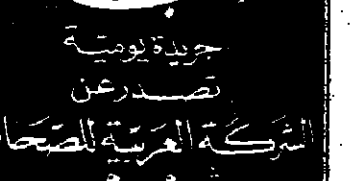 جريدة يومية
تصدر عن
الشركة العربية للصحا